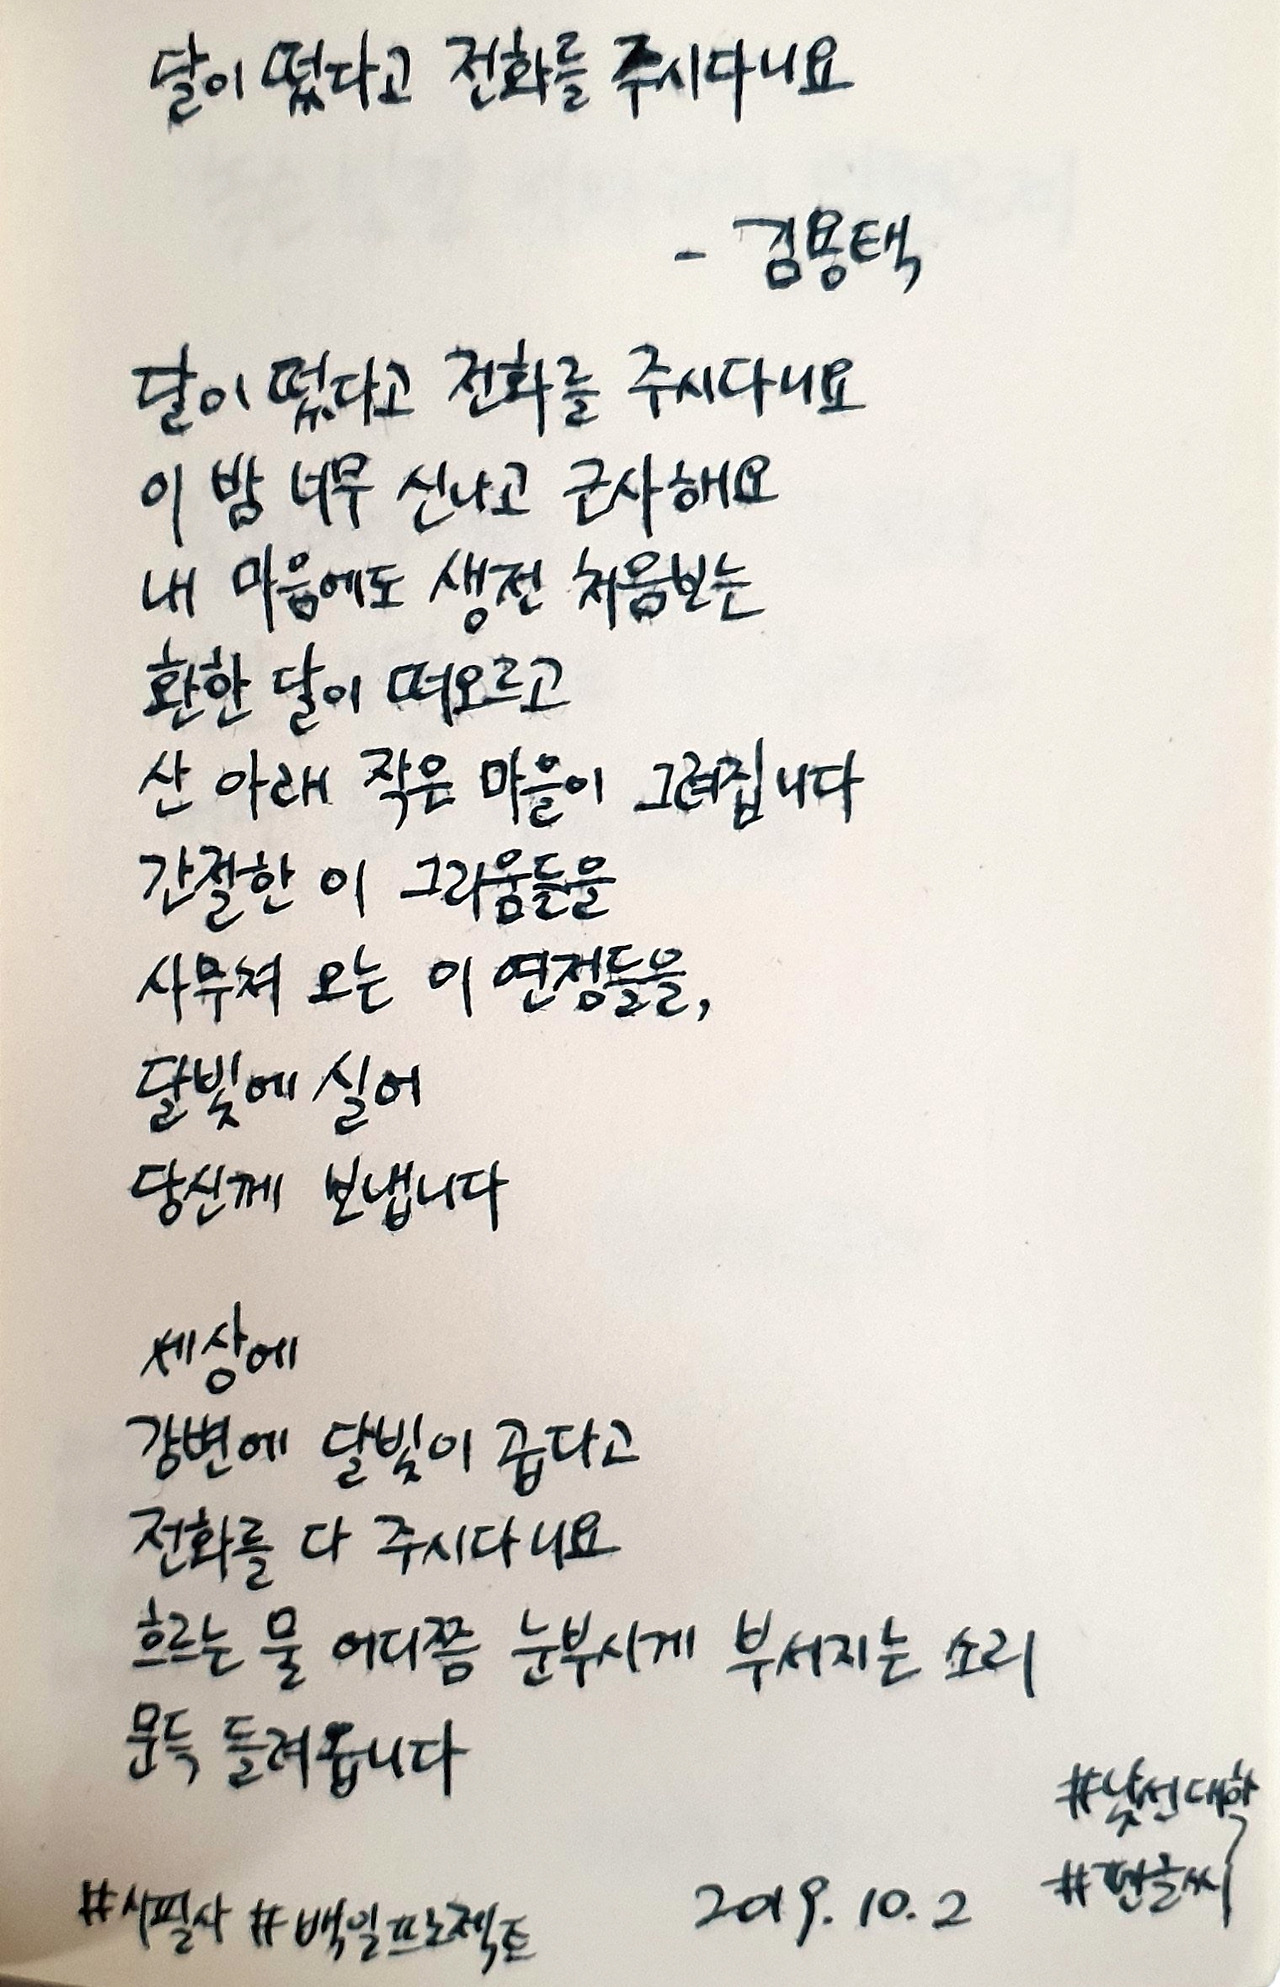 달이 떴다고 전화를 주시다니요
- 김용택
달이 떴다고 전화를 주시다니요
이 밤 너무 신나고 근사해요
내 마음에도 생전 처음보는
환한 달이 떠오르고
산 아래 작은 마을이 그려집니다
간절한 이 그리움들을
사무쳐 오는 이 연정들을,
달빛에 실어
당신께 보냅니다
세상에
강변에 달빛이 곱다고
전화를 다 주시다니요
흐르는 물 어디쯤 눈부시게 부서지는 소리
문득 들려옵니다
#낯선대학
#펜글씨
#시필사 #백일프로젝트 2019.10.2